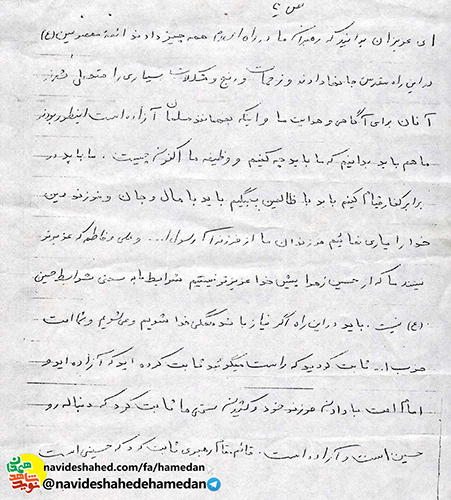 ای عزیزان بدانید که رهبران ما در راه اسلام همه چیز دادند ائمهٔ معصومین (ع)
در این راه مقدس جانها دادند و زحمات و رنج و مشکلات بسیاری را متحمل شدند
آنان برای آگاهی و هدایت ما و اینکه بفهمانند مسلمان آزاده است اینطور بودند
ما هم باید بدانیم که ما باید چه کنیم و وظیفه ما اکنون چیست. ما باید در
برابر کفار قیام کنیم باید با ظالمین بجنگیم باید با مال و جان و فرزند دین
خدا را یاری نمائیم فرزندان ما از فرزند رسول ا... و علی و فاطمه که عزیزتر
نیستند ما که از حسین زهرا پیش خدا عزیزتر نیستیم شرایط ما به سختی شرایط حسین
(ع) نیست. باید در این راه اگر نیاز باشد همگی فدا شویم و می‌شویم و شما امت
حزب ا... ثابت کردید که راست میگوئید ثابت کرده اید که آزاده اید و
اما امت با دادن فرزند خود و کشیدن سختی‌ها ثابت کرد که دنباله رو
حسین است و آزاده است. قائم مقام رهبری ثابت کرد که حسینی است
navideshahed.com/fa/hamedan
@navideshahedehamedan